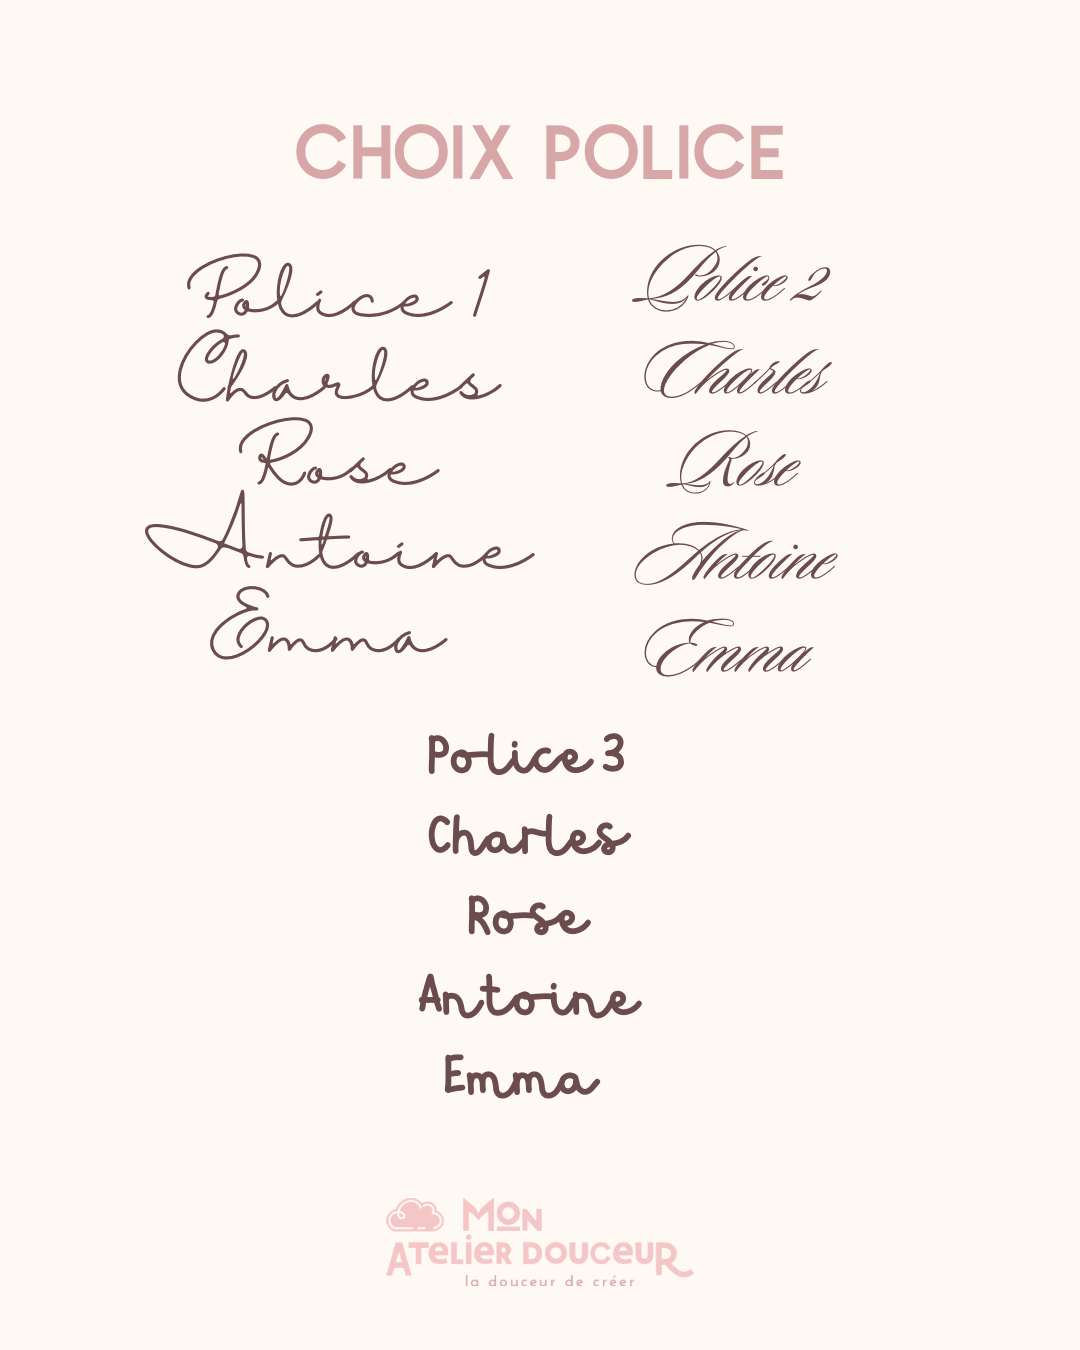 CHOIX POLICE
Police 1
Charles
Rose
Antoine
Emma
Police 2
Charles
Rose
Antoine
Emma
Police 3
Charles
Rose
Antoine
Emma
MON
ATELIER DOUCEUR
la douceur de créer